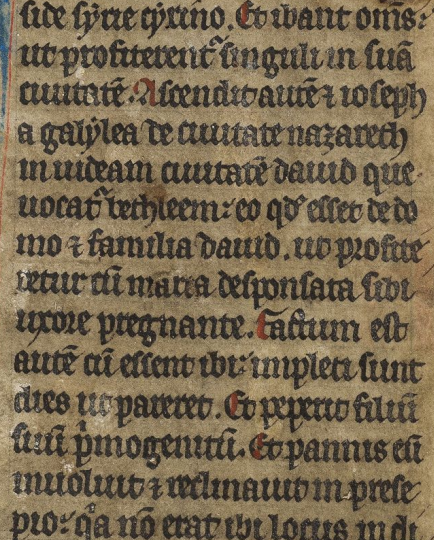 side syrie cyrino. Et ibant om̅s:
ut profiterent᷑ singuli in suā
ciuitatē. Ascendit autē ⁊ ioseph
a galylea de ciuitate nazareth
in iudeam ciuitatē dauid que
uocat᷑ bethleem: eo qd̕ esset de do
mo ⁊ familia dauid. ut profite
retur cū maria desponsata sibi
uxore pregnante. Factum est
autē cū essent ibi: impleti sunt
dies ut pareret. Et peperit filiū
suū pⁱmogenitū. Et pannis eū
inuoluit ⁊ reclinauit in prese
pio: qͣa nō erat ibi locus in di